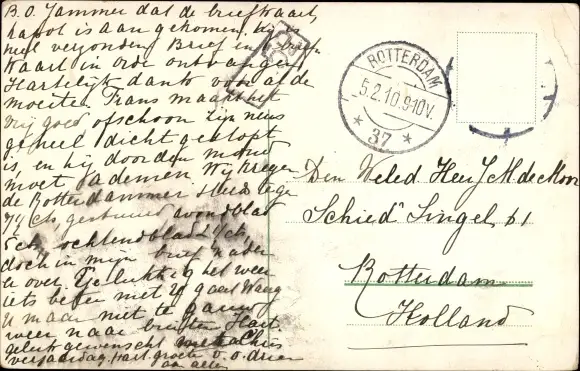 B. O. Jammer dat de briefkaart
kapot is aan gekomen,
wel verzonden Brief en
kaart in orde ontvangen
Hartelijk dank voor al de
moeiten. Frans maakt het
vrij goed ofschoon zijn neus
geheel dicht
is, en hij door den mond
moet ademen. Wij kregen
de Rotterdammer steeds
avondblad
5 cts ochtendblad
doch in mijn brief
te over. Gelukkig het weer
iets beter met U gaat
U maar niet te gauw
weer naar buiten Hart.
geluk gewenscht met
verjaardag. Hart. groete v. o. drien
aan allen
ROTTERDAM
5.2.10.9-10V.
* 37 *
Den Weled Heer J M de Moor
Schied. Singel 61
Rotterdam
Holland